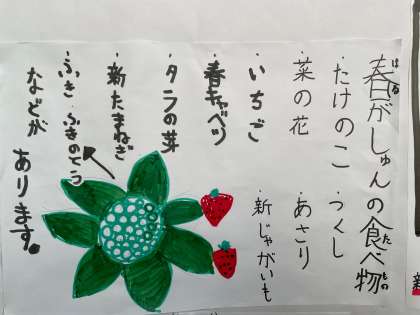 春がしゅんの食べ物
はる
た
もの
・たけのこ ・つくし
・菜の花 ・あさり
・いちご ・新じゃがいも
・春キャベツ
・タラの芽
・新たまねぎ
・ふき・ふきのとう
などが
あります。